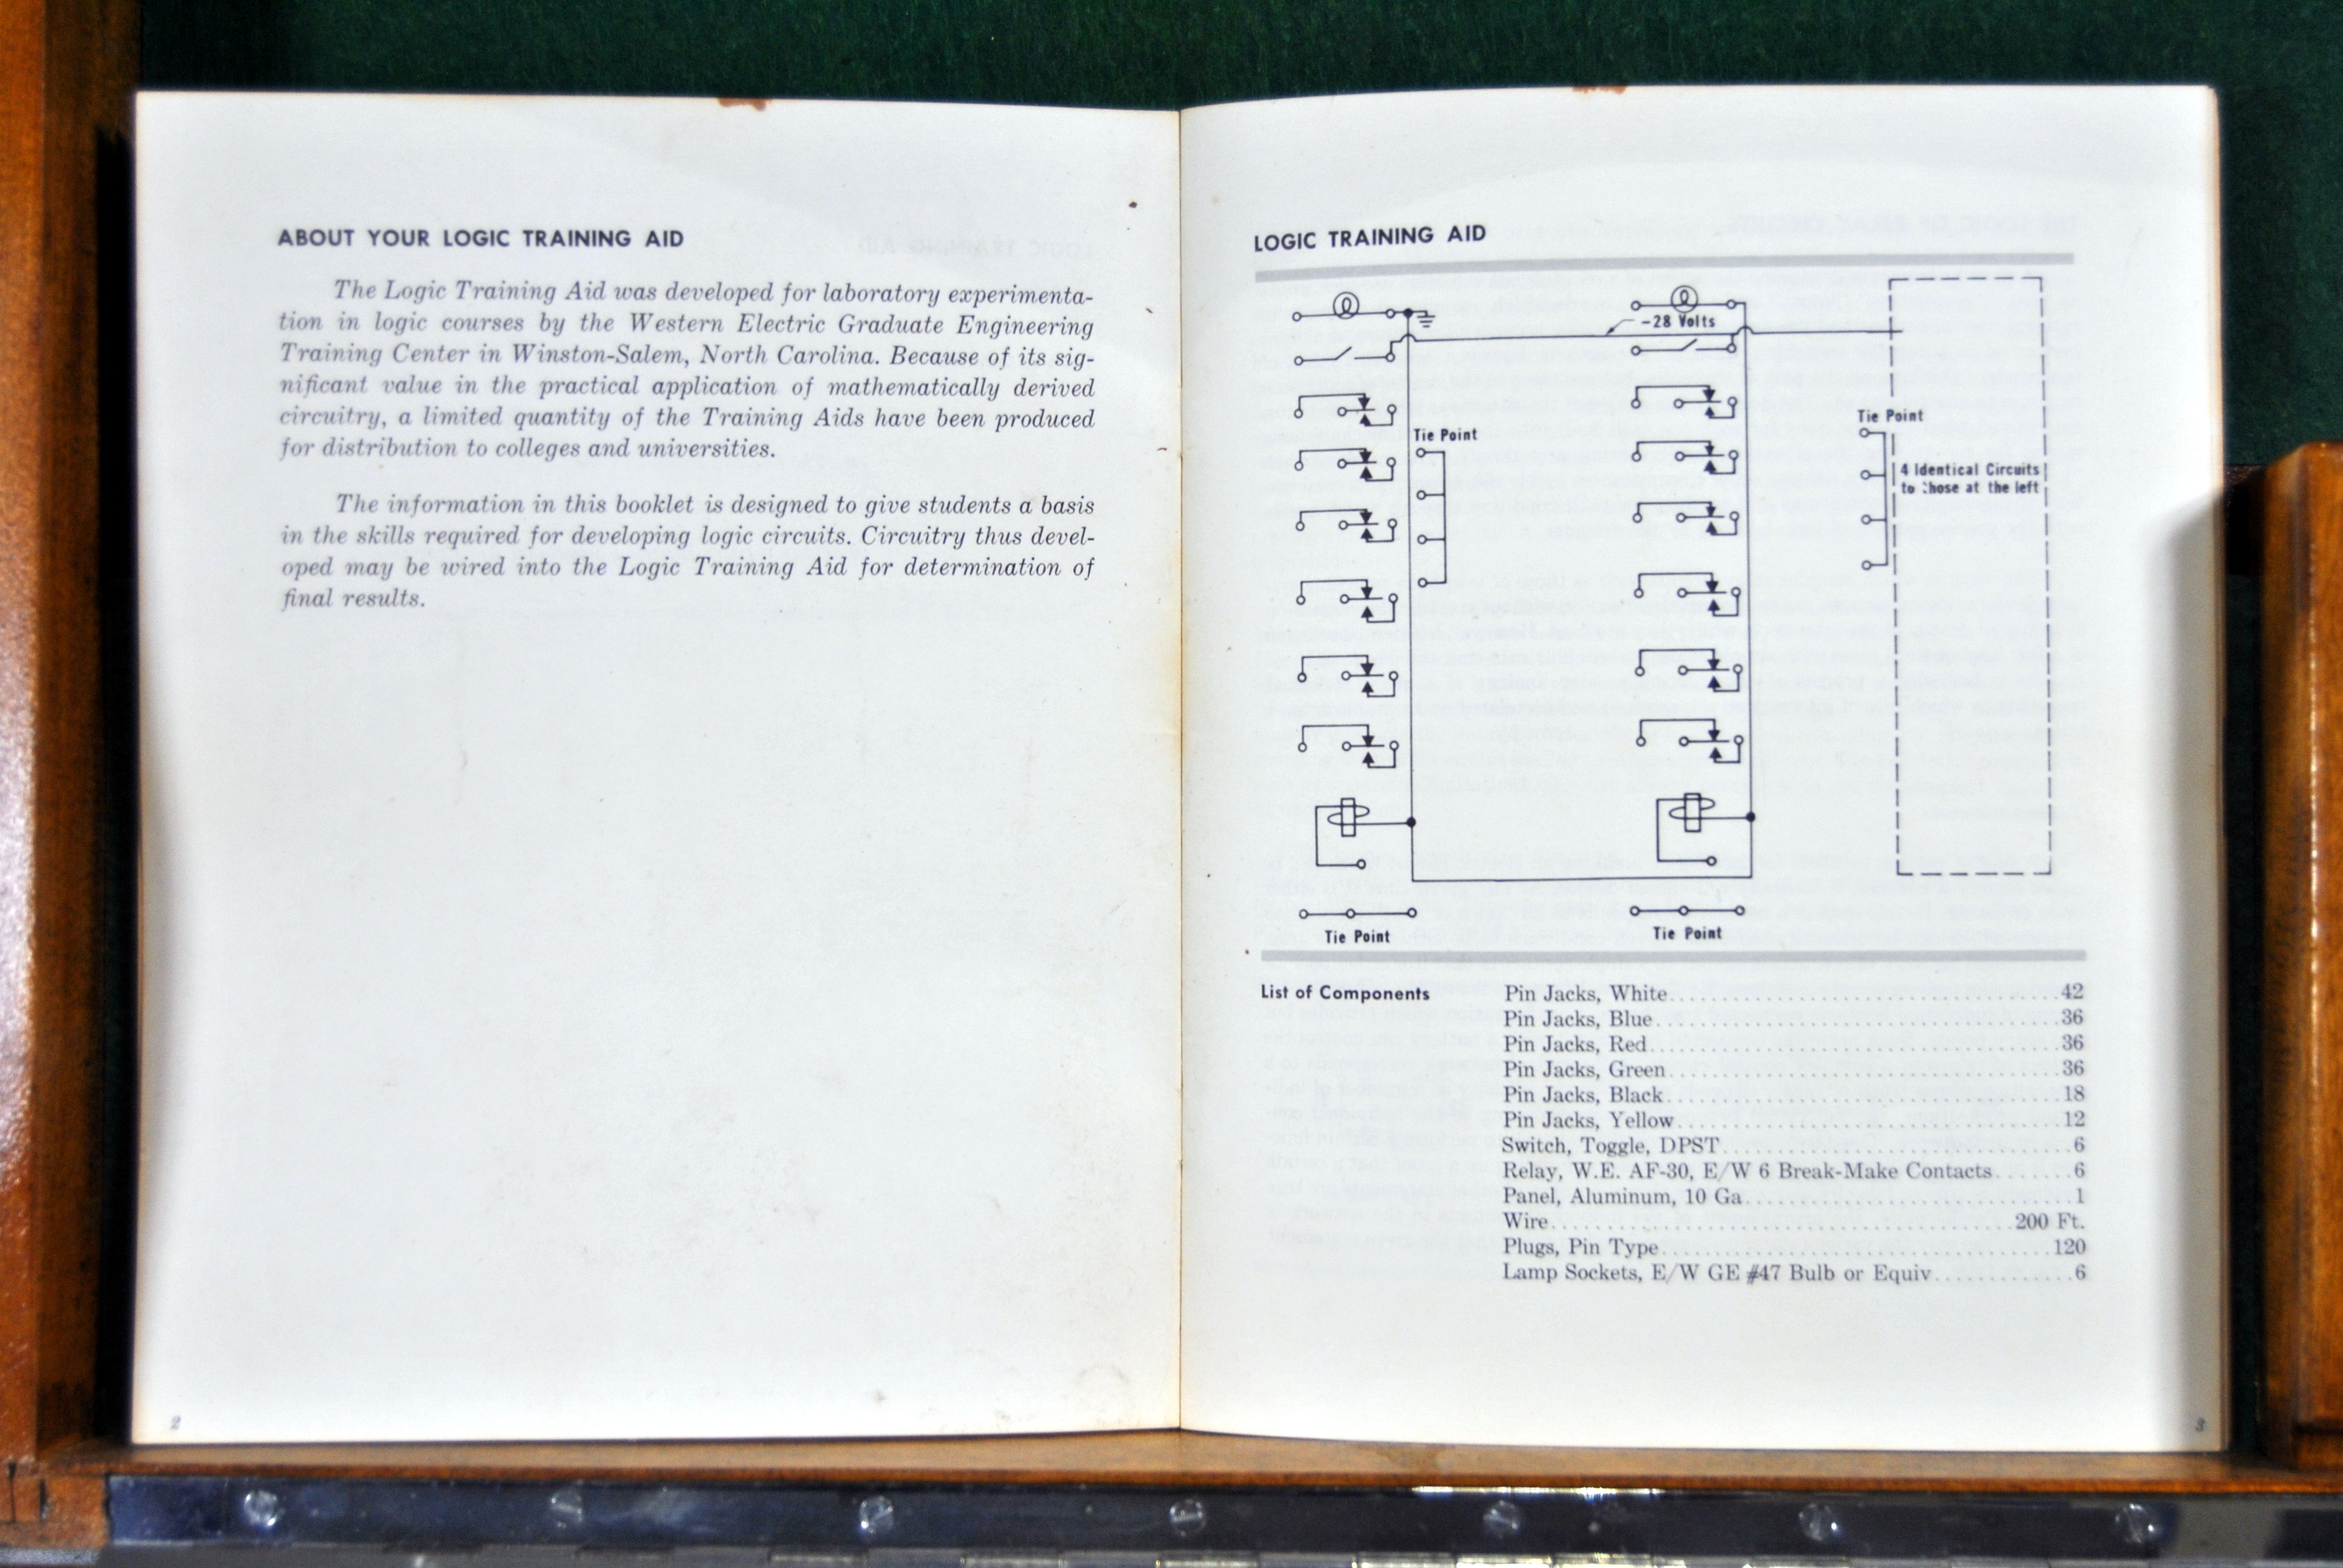 ABOUT YOUR LOGIC TRAINING AID
The Logic Training Aid was developed for laboratory experimenta-
tion in logic courses by the Western Electric Graduate Engineering
Training Center in Winston-Salem, North Carolina. Because of its sig-
nificant value in the practical application of mathematically derived
circuitry, a limited quantity of the Training Aids have been produced
for distribution to colleges and universities.
The information in this booklet is designed to give students a basis
in the skills required for developing logic circuits. Circuitry thus devel-
oped may be wired into the Logic Training Aid for determination of
final results.
2
LOGIC TRAINING AID
-28 Volts
Tie Point
Tie Point
4 Identical Circuits
to those at the left
Tie Point
Tie Point
List of Components
Pin Jacks, White........................................42
Pin Jacks, Blue.........................................36
Pin Jacks, Red..........................................36
Pin Jacks, Green........................................36
Pin Jacks, Black........................................18
Pin Jacks, Yellow.......................................12
Switch, Toggle, DPST....................................6
Relay, W.E. AF-30, E/W 6 Break-Make Contacts........6
Panel, Aluminum, 10 Ga..................................1
Wire................................................200 Ft.
Plugs, Pin Type.........................................120
Lamp Sockets, E/W GE #47 Bulb or Equiv.............6
3